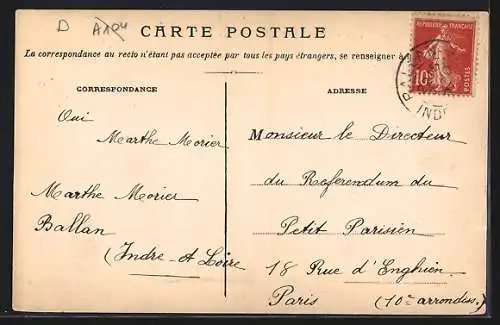 D A194
CARTE POSTALE
La correspondance au recto n'étant pas acceptée par tous les pays étrangers, se renseigner à
REPUBLIQUE FRANÇAISE
10
BALLAN
INDRE
CORRESPONDANCE
ADRESSE
Oui
Marthe Morier
Monsieur le Directeur
du Referendum du
Petit Parisien
18 Rue d'Enghien
Paris (10e arrondiss.)
Marthe Morier
Ballan
(Indre-et Loire